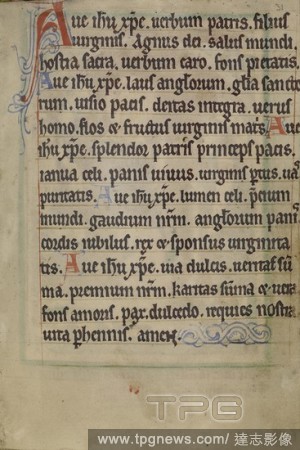 31
Aue ihu xpe. uerbum patris. filius
uirginis. Agnus dei. salus mundi.
hostia sacra. uerbum caro. fons pietatis.
Aue ihu xpe. laus anglorum. glia sancto
rum. uisio pacis. deitas integra. uerus
homo. flos et fructus uirginis matris. Aue
ihu xpe. splendor patris princeps pacis.
ianua celi. panis uiuus. uirginis partus. uas
puritatis. Aue ihu xpe. lumen celi. precium
mundi. gaudium nrm. anglorum panis.
cordis iubilus. rex et sponsus uirginita
tis. Aue ihu xpe. uia dulcis. ueritas sum
ma. premium nrm. karitas suma et uera
fons amoris. pax. dulcedo. requies nostra
uita perhennis. amen.
TPG
www.tpgnews.com/達志影像